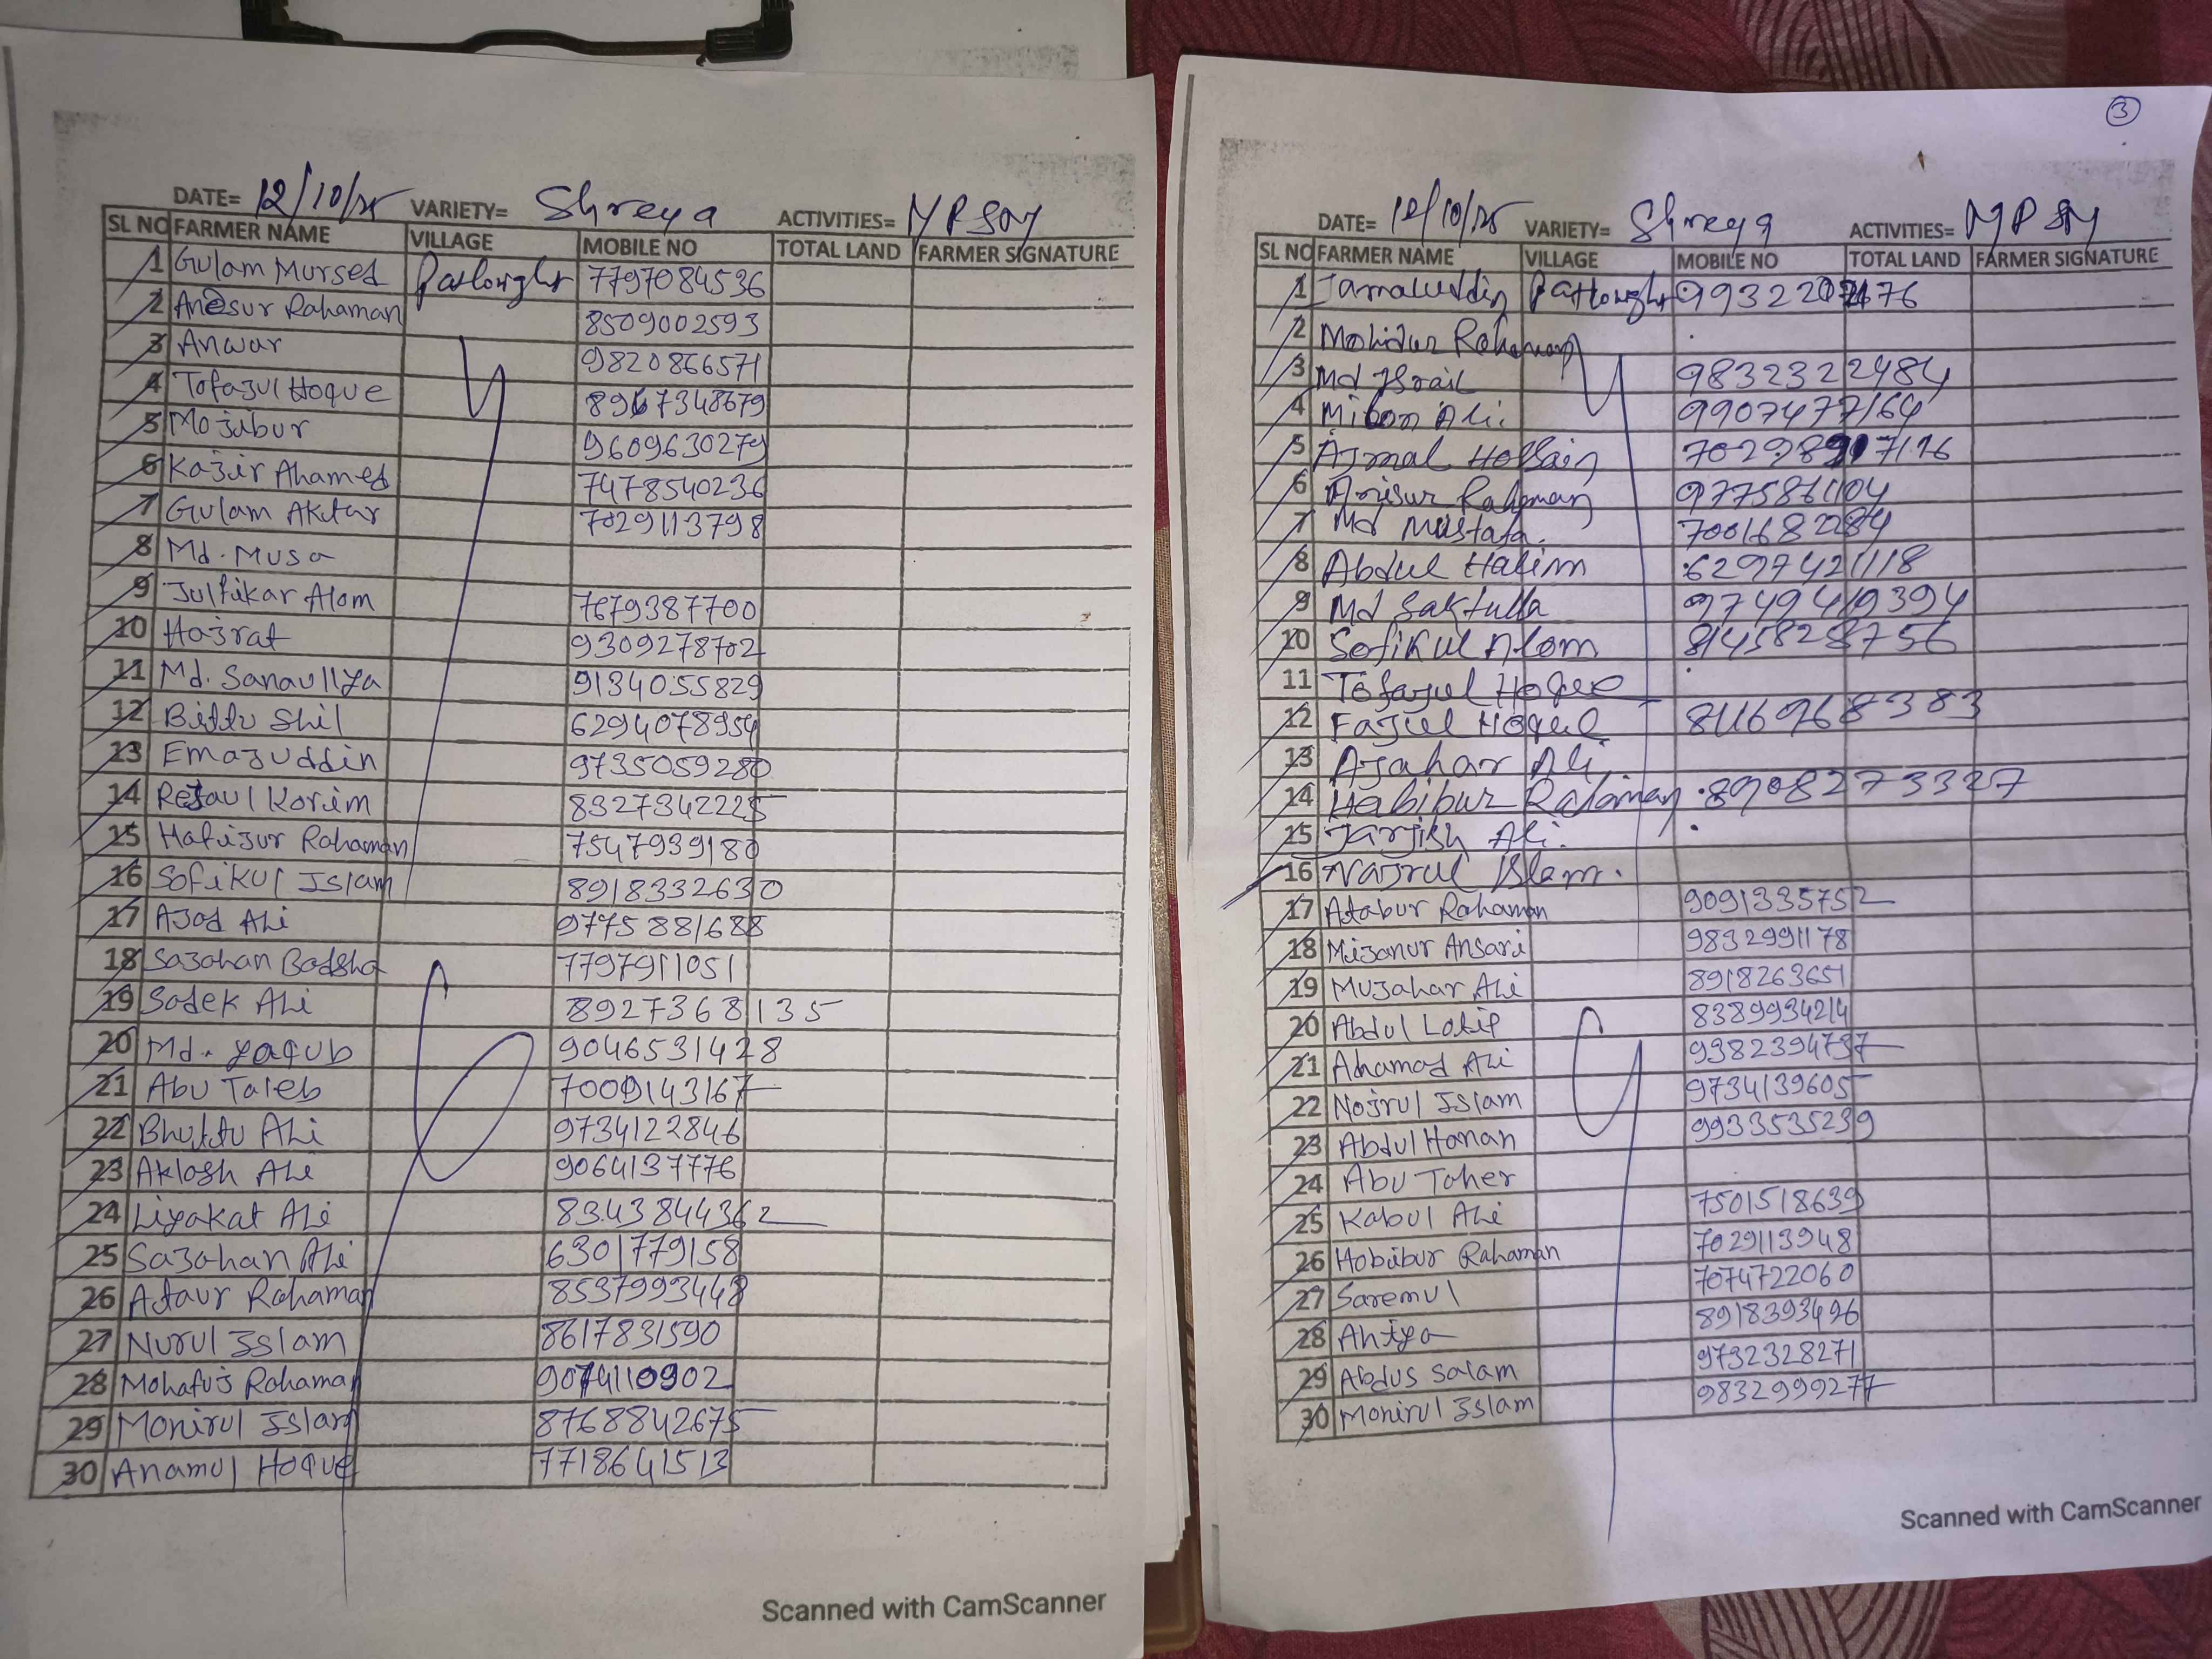 DATE= 12/10/25 VARIETY= Shreya ACTIVITIES= MPSoy
SL NO FARMER NAME VILLAGE MOBILE NO TOTAL LAND FARMER SIGNATURE
1 Gulam Mursed 7797084536
2 Anesur Rahaman 8509002593
3 Anwar 9820866571
4 Tofazul Hoque 8967348679
5 Mozibur 9609630279
6 Kazir Ahamed 7478540236
7 Gulam Aktar 7029113798
8 Md. Musa
9 Julfikar Alom 7679387700
10 Hazrat 9309278702
11 Md. Sanaullya 9134055829
12 Bittu Shil 6294078954
13 Emazuddin 9735059280
14 Rezaul Korim 8327342225
15 Hafizur Rahaman 7547939180
16 Sofikul Islam 8918332630
17 Azad Ali 9775881688
18 Sazahan Badsha 7797911051
19 Sadek Ali 8927368135
20 Md. Yaqub 9046531428
21 Abu Taleb 7009143167
22 Bhuttu Ali 9734122846
23 Aklash Ali 9064137776
24 Liyakat Ali 8343844362
25 Sazahan Ali 6301779158
26 Ataur Rahaman 8537993448
27 Nurul Islam 8617831590
28 Mohafuz Rahaman 9074110902
29 Monirul Islam 8768842675
30 Anamul Hoque 7718641513
Scanned with CamScanner
3
DATE= 12/10/25 VARIETY= Shreya ACTIVITIES=
SL NO FARMER NAME VILLAGE MOBILE NO TOTAL LAND FARMER SIGNATURE
1 Jamaluddin
2 Mohidur Rahaman
3 Md Israil 9832322484
4 Milon Ali. 9907477164
5 Ajmal Hossain
6 Anisur Rahaman 9775861104
7 Md Mustafa. 7001682284
8 Abdul Halim 6297421118
9 Md Saktulla 9749419394
10 Sofikul Alom 8145828756
11 Tofazul Hoque
12 Fajlul Hoque 8116968383
13 Azahar Ali
14 Habibur Rahaman 8908273327
15 Jarjish Ali.
16 Najrul Islam.
17 Atabur Rahaman 9091335752
18 Mizanur Ansari 9832991178
19 Muzahar Ali 8918263651
20 Abdul Latif 8389934214
21 Ahamad Ali 9382394737
22 Nojrul Islam 9734139605
23 Abdul Hanan 9933535239
24 Abu Taher
25 Kabul Ali 7501518639
26 Hobibur Rahaman 7029113948
27 Saremul 7074722060
28 Antya 8918393496
29 Abdus Salam 9732328271
30 Monirul Islam 9832999277
Scanned with CamScanner